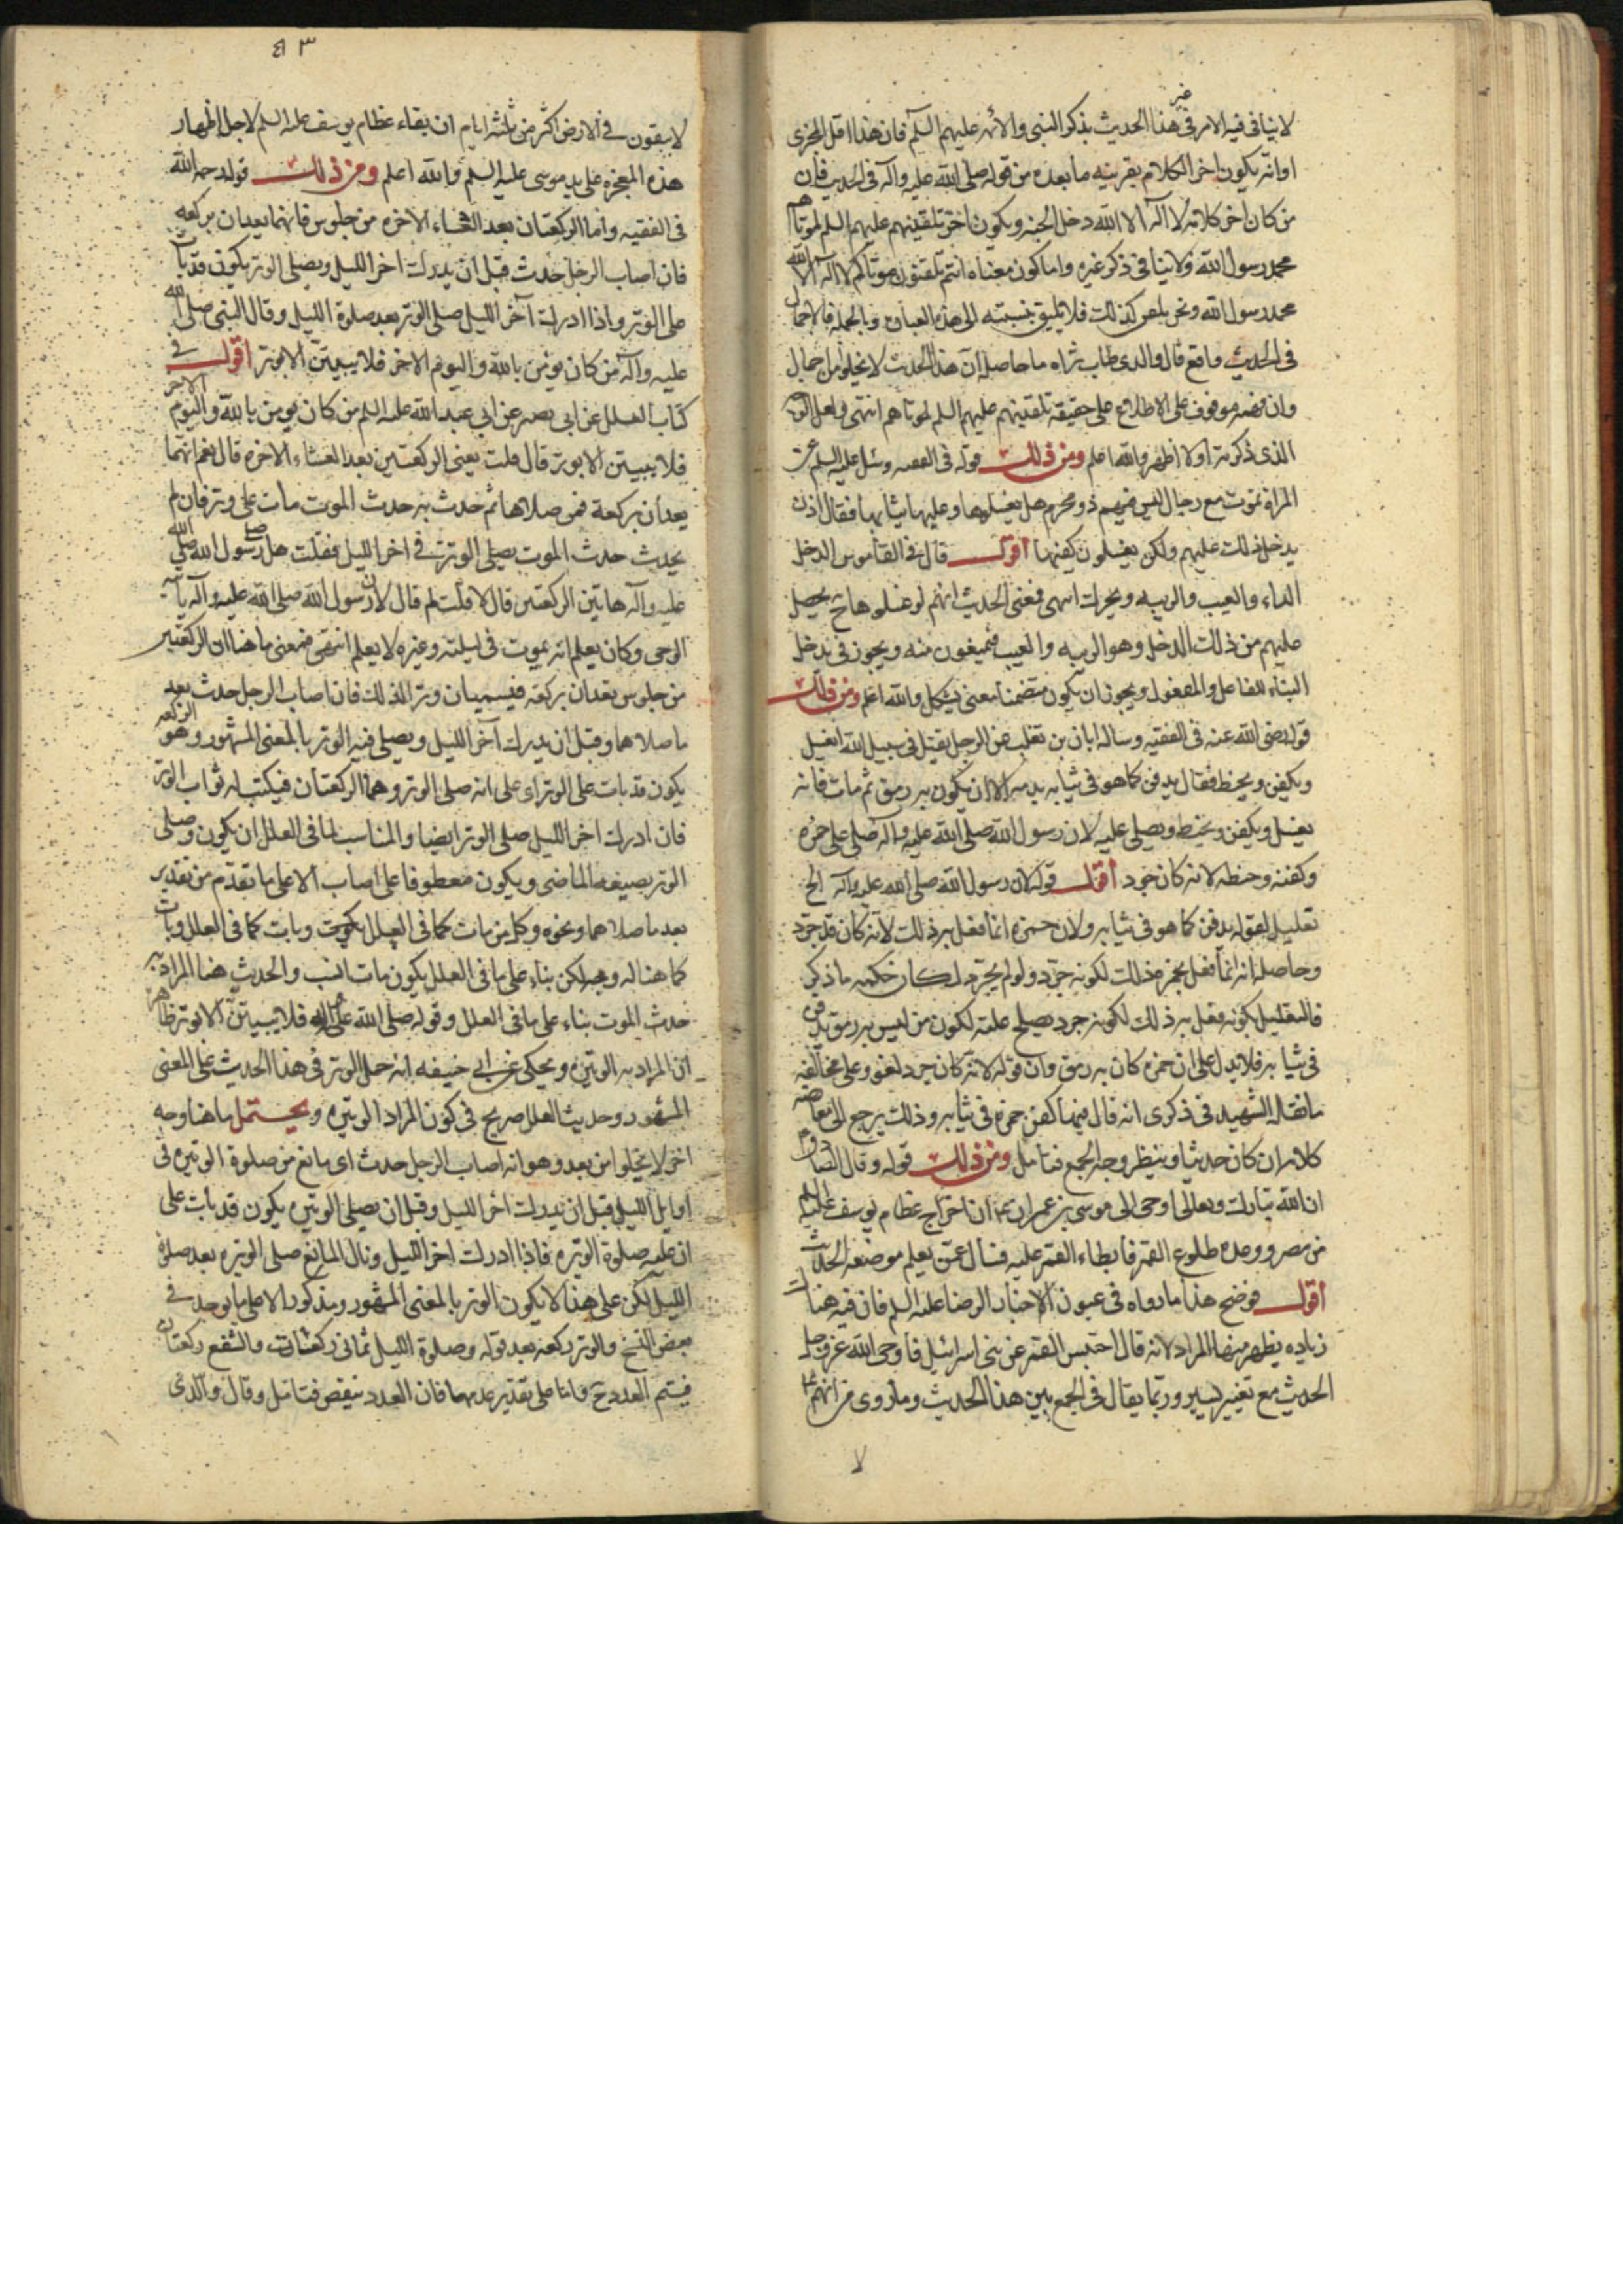 لا ينافى فيه الامر فى غير هذا الحديث بذكر النبى والائمه عليهم السلم فان هذا اقل المجزى
او انه يكون اخر الكلام بقرينه ما بعده من قوله صلى الله عليه وآله فى الحديث فان
من كان اخر كلامه لا اله الا الله دخل الجنه ويكون اخر تلقينهم عليهم السلم لموتاهم
محمد رسول الله ولا ينافى ذكر غيره واما كون معناه انتم تلقنون موتاكم لا اله الا الله
محمد رسول الله ونحن نلقن كذلك فلا يليق بنسبته الى هذه العباره وبالجمله فالاجمال
فى الحديث واقع قال والدى طاب ثراه ما حاصله ان هذا الحديث لا يخلو من اجمال
وان فهمه موقوف على الاطلاع على حقيقة تلقينهم عليهم السلم لموتاهم انتهى ولعل الوجه
الذى ذكرته اولا اظهر والله اعلم ومن ذلك قوله فى الفقيه وسئل عليه السلم عن
المراة تموت مع رجال ليس فيهم ذو محرم هل يغسلونها وعليها ثيابها فقال اذن
يدخل ذلك عليهم ولكن يغسلون كفيها اقول قال فى القاموس الدخل
الداء والعيب والريبه ويحرك انتهى فمعنى الحديث انهم لو غسلوها ح يحصل
عليهم من ذلك الدخل وهو الريبه والعيب فيمنعون منه ويجوز فى يدخل
البناء للفاعل والمفعول ويجوز ان يكون متضمنا معنى يشكل والله اعلم ومن ذلك
قوله رضى الله عنه فى الفقيه وساله ابان بن تغلب عن الرجل يقتل فى سبيل الله ايغسل
ويكفن ويحنط فقال يدفن كما هو فى ثيابه بدمه الا ان يكون به رمق ثم مات فانه
يغسل ويكفن ويحنط ويصلى عليه لان رسول الله صلى الله عليه وآله صلى على حمزه
وكفنه وحنطه لانه كان جرد اقول قوله لان رسول الله صلى الله عليه وآله الخ
تعليل لقوله يدفن كما هو فى ثيابه ولان حمزه انما فعل به ذلك لانه كان قد جرد
وحاصله انه انما فعل بحمزه ذلك لكونه جرد ولو لم يجرد لكان حكمه ما ذكر
فالتعليل بكونه فعل به ذلك لكونه جرد يصلح علة لكون من ليس به رمق يدفن
فى ثيابه فلا يدل على ان حمزه كان به رمق وان قوله لانه كان جرد لغو وعلى مخالفة
ما نقله الشهيد فى ذكرى انه قال فيها كفن حمزه فى ثيابه وذلك يرجع الى معارضة
كلامه ان كان حديثا وينظر وجه الجمع فتامل ومن ذلك قوله وقال الصادق
ان الله تبارك وتعالى اوحى الى موسى بن عمران ان اخرج عظام يوسف عليه السلم
من مصر ووعده طلوع القمر فابطاء القمر عليه فسال عمن يعلم موضعه الحديث
اقول يوضح هذا ما رواه فى عيون الاخبار الرضا عليه السلم فان فيه هناك
زياده يظهر منها المراد لانه قال احتبس القمر عن بنى اسرائيل فاوحى الله عز وجل
الحديث مع تغيير يسير وربما يقال فى الجمع بين هذا الحديث وما روى من انهم
لا
٤٣
لا يبقون فى الارض اكثر من ثلثة ايام ان بقاء عظام يوسف عليه السلم لاجل اظهار
هذه المعجزه على يد موسى عليه السلم والله اعلم ومن ذلك قوله رحمه الله
فى الفقيه واما الركعتان بعد العشاء الاخره من جلوس فانهما يعدان بركعه
فان اصاب الرجل حدث قبل ان يدرك اخر الليل ويصلى الوتر يكون قد بات
على الوتر واذا ادرك آخر الليل صلى الوتر بعد صلوة الليل وقال النبى صلى الله
عليه وآله من كان يومن بالله واليوم الاخر فلا يبيتن الا بوتر اقول فى
كتاب العلل عن ابى بصير عن ابى عبد الله عليه السلم من كان يومن بالله واليوم الاخر
فلا يبيتن الا بوتر قال قلت يعنى الركعتين بعد العشاء الاخره قال نعم انهما
يعدان بركعة فمن صلاها ثم حدث به حدث الموت مات على وتر فان لم
يحدث حدث الموت يصلى الوتر فى اخر الليل فقلت هل صلى رسول الله صلى الله
عليه وآله هاتين الركعتين قال لا قلت لم قال لان رسول الله صلى الله عليه وآله ياتيه
الوحى وكان يعلم انه يموت فى ليلته وغيره لا يعلم انتهى فمعنى ما هنا ان الركعتين
من جلوس تعدان بركعة فيسميان وتر الذلك فان اصاب الرجل حدث بعد
ما صلاهما وقبل ان يدرك آخر الليل ويصلى فيه الوتر بالمعنى المشهور وهو الركعه
يكون قد بات على الوتر اى على انه صلى الوتر وهما الركعتان فيكتب له ثواب الوتر
فان ادرك اخر الليل صلى الوتر ايضا والمناسب لما فى العلل ان يكون وصلى
الوتر بصيغه الماضى ويكون معطوفا على اصاب الا على ما تقدم من تقدير
بعد ما صلاهما ونحوه وكل من مات كما فى العلل يكون وبات كما فى العلل وبات
كما هنا له وجه لكن بناء على ما فى العلل يكون مات انسب والحديث هنا المراد به
حدث الموت بناء على ما فى العلل وقوله صلى الله عليه واله فلا يبيتن الا بوتر ظاهره
ان المراد به الوتيره ويحكى عن ابى حنيفه انه حمل الوتر فى هذا الحديث على المعنى
المشهور وحديث العلل صريح فى كون المراد الوتيره ويحتمل ما هنا وجه
اخر لا يخلو من بعد وهو انه اصاب الرجل حدث اى مانع من صلوة الوتيره فى
اوايل الليل قبل ان يدرك اخر الليل وقبل ان يصلى الوتيره يكون قد بات على
ان عليه صلوة الوتيره فاذا ادرك اخر الليل وزال المانع صلى الوتيره بعد صلوة
الليل لكن على هذا لا يكون الوتر بالمعنى المشهور ومذكور الا على ما يوجد فى
بعض النسخ والوتر ركعه بعد قوله وصلوة الليل ثمانى ركعات والشفع ركعتان
فيتم العدد ح واما على تقدير عدمها فان العدد ينقص فتامل وقال والدى